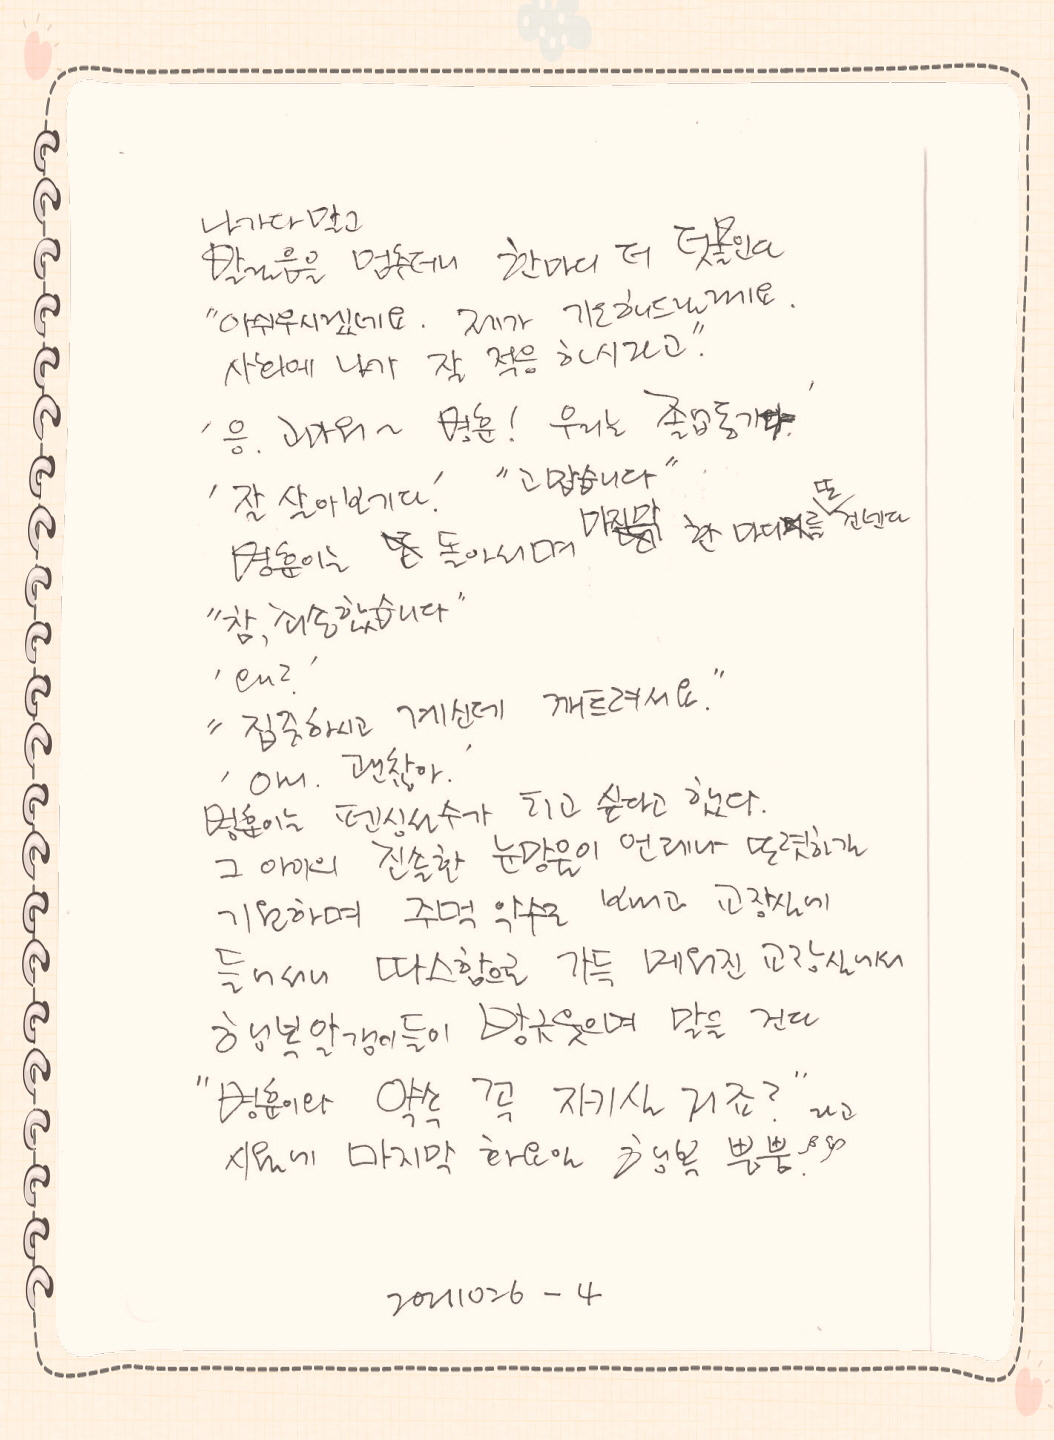 나가다 말고
발걸음을 멈추더니 한마디 더 덧붙인다
"아쉬우시겠네요. 제가 기도해드릴게요.
사회에 나가 잘 적응 하시라고".
'응. 고마워~ 명훈! 우리는 졸업동기.'
'잘 살아보기다.' "고맙습니다"
명훈이는 돌아서며 마지막 한 마디를 또 건넨다
"참, 죄송했습니다"
'왜?'
"집중하시고 계신데 깨트려서요."
'아니. 괜찮아.'
명훈이는 펜싱선수가 되고 싶다고 했다.
그 아이의 진솔한 눈망울이 언제나 또렷하길
기도하며 주먹 악수로 보내고 교장실에
들어서니 따스함으로 가득 메워진 교장실에서
행복알갱이들이 방긋웃으며 말을 건다
"명훈이와 약속 꼭 지키실 거죠?" 라고
시월에 마지막 화요일 행복 뿜뿜.
20211026 - 4